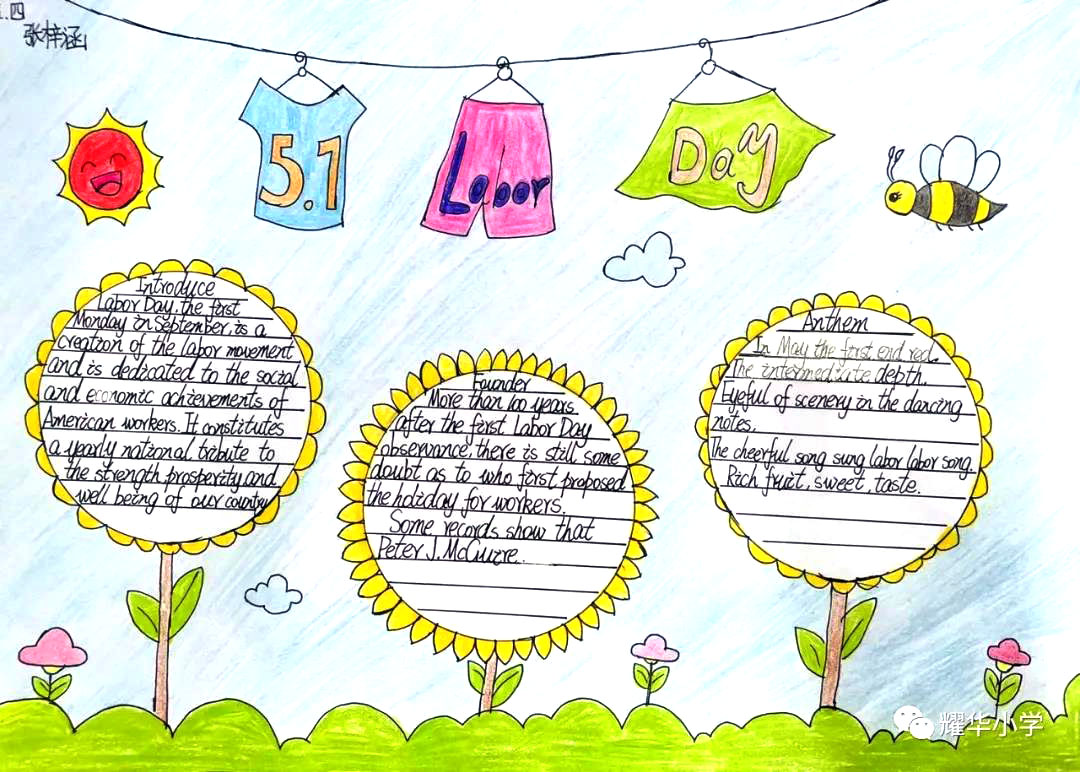 .四
张梓涵
5.1
Labor
Day
Introduce
Labor Day, the first
Monday in September, is a
creation of the labor movement
and is dedicated to the social
and economic achievements of
American workers. It constitutes
a yearly national tribute to
the strength prosperity and
well being of our country
Founder
More than 100 years
after the first Labor Day
observance, there is still some
doubt as to who first proposed
the holiday for workers.
Some records show that
Peter J. McGuire.
Anthem
In May the first end red.
The intermediate depth.
Eyeful of scenery in the dancing
notes.
The cheerful song sung labor labor song.
Rich fruit, sweet, taste.
耀华小学